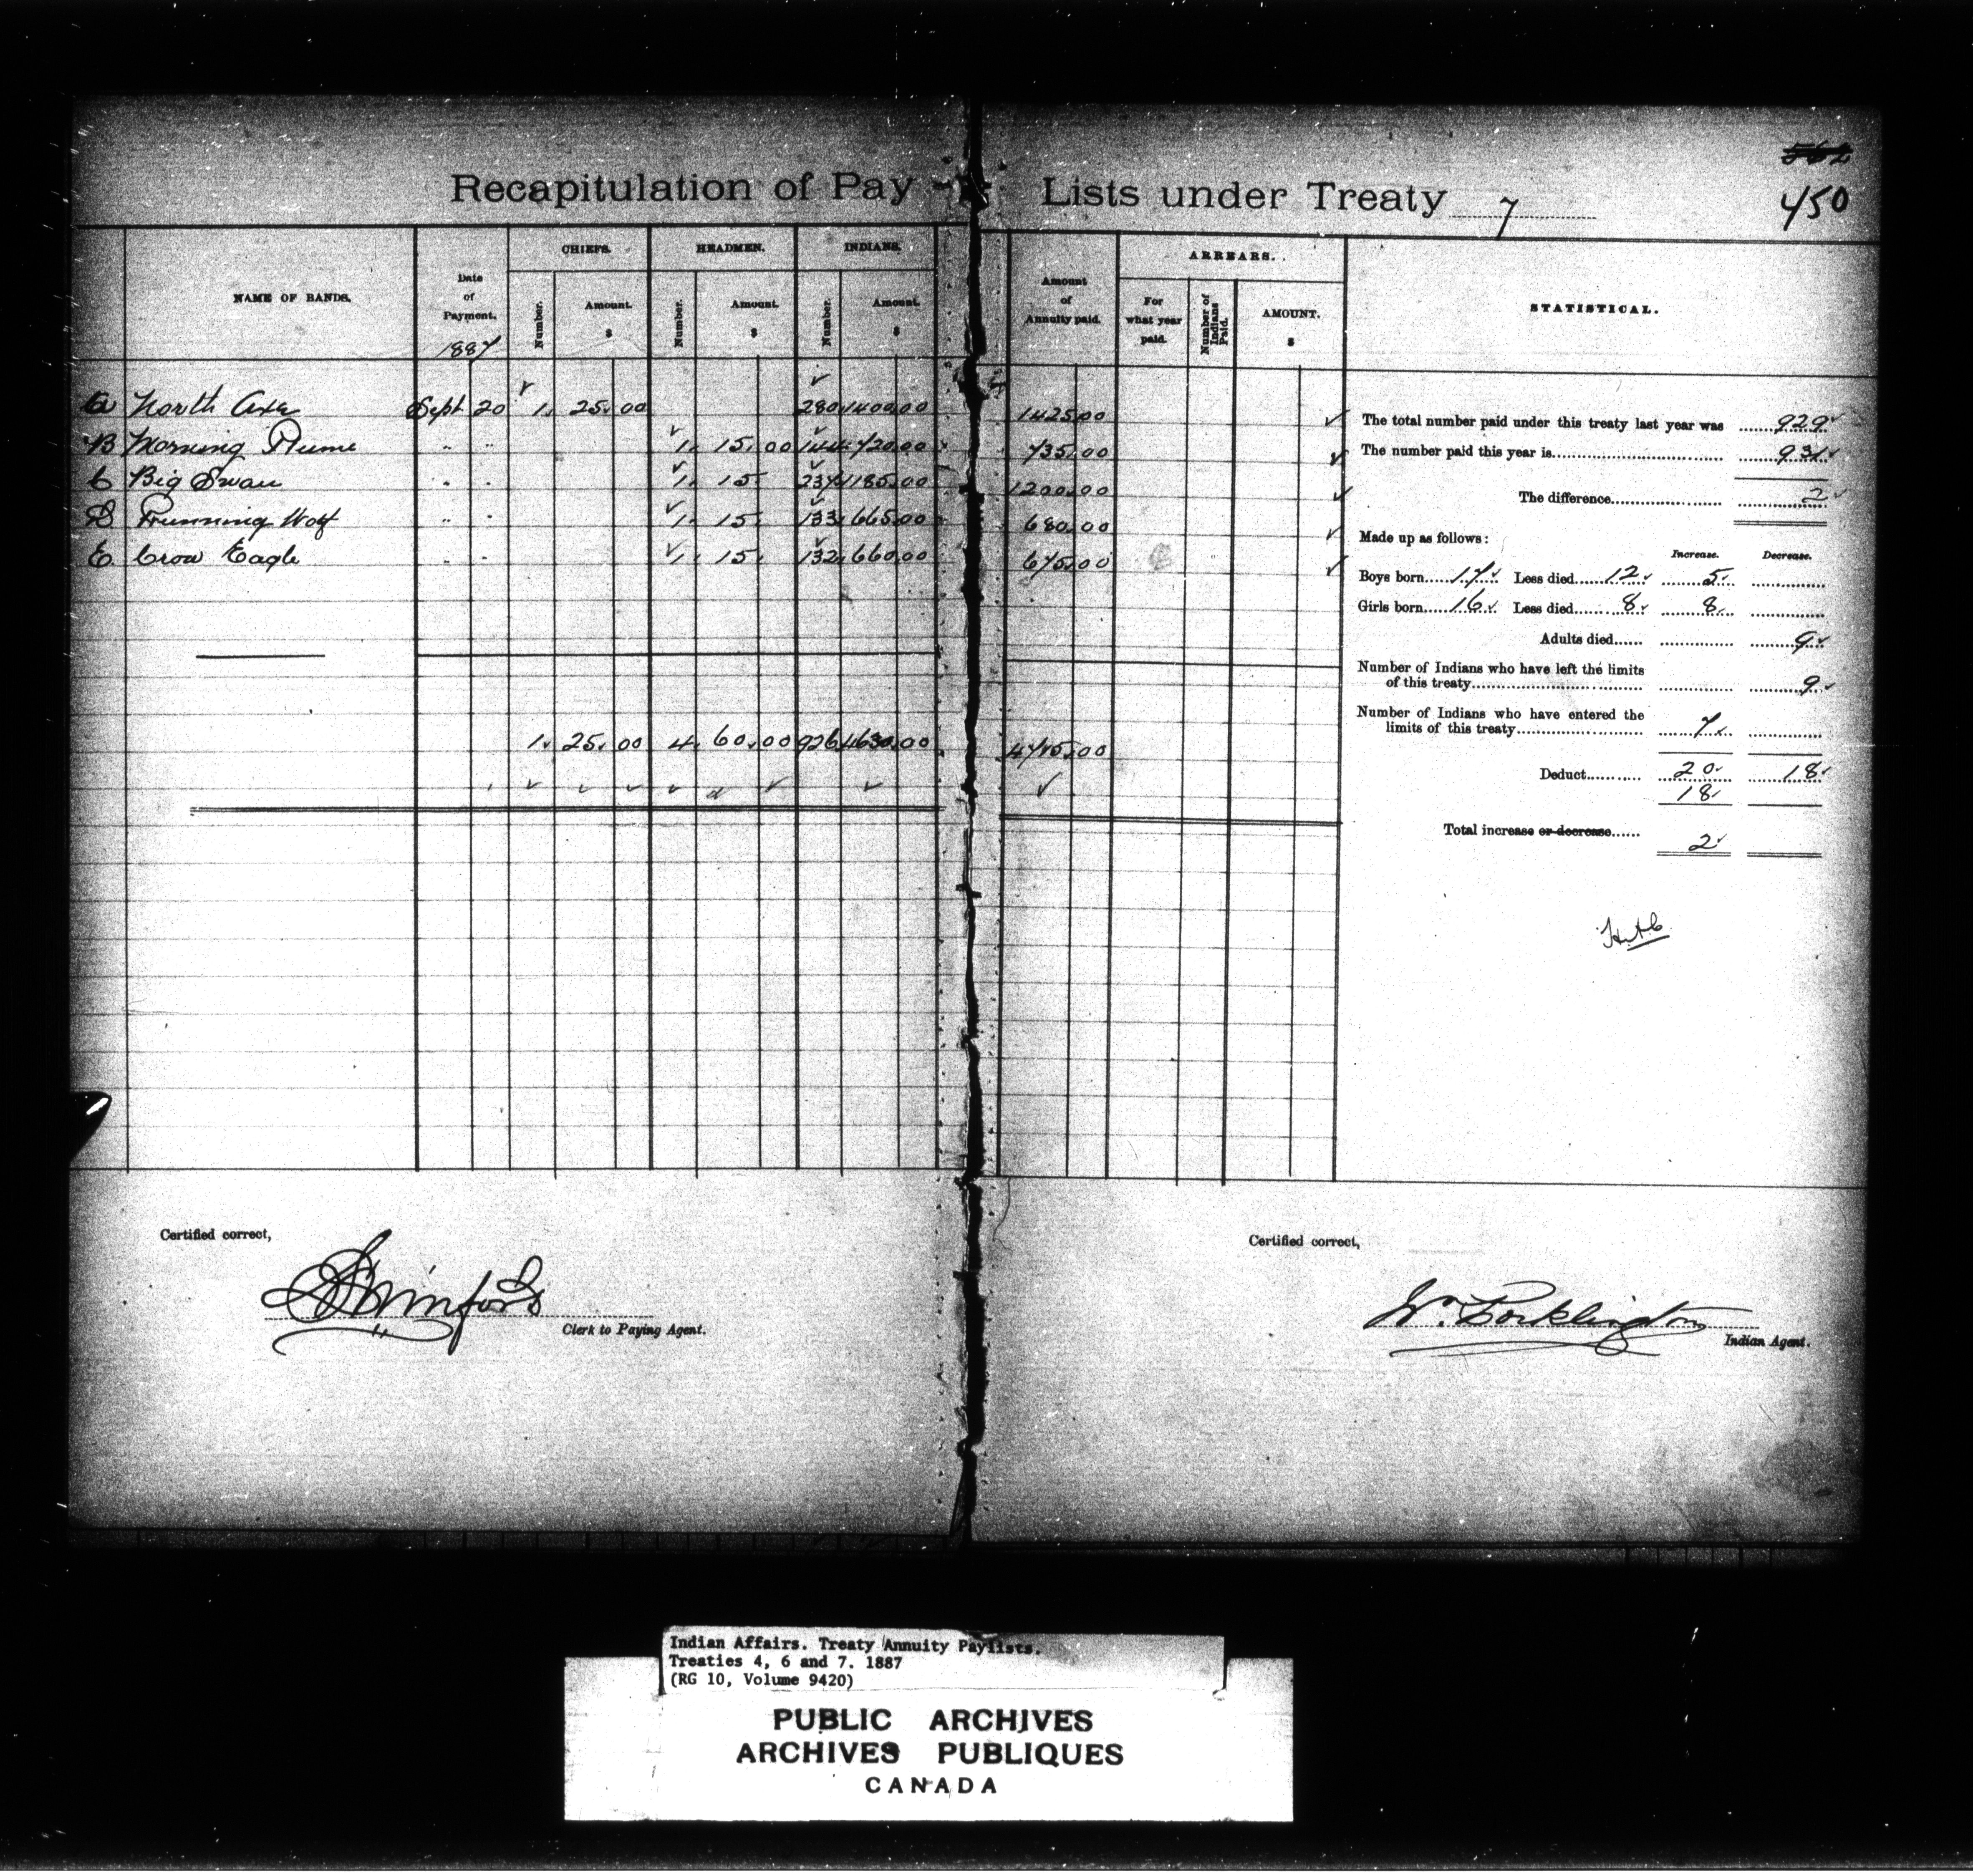 562
Recapitulation of Pay - Lists under Treaty 7
450
NAME OF BANDS. Date of Payment. 1887 CHIEFS. Number. Amount. $ HEADMEN. Number. Amount. $ INDIANS. Number. Amount. $ Amount of Annuity paid. ARREARS. For what year paid. Number of Indians Paid. AMOUNT. $ STATISTICAL.
A North Axe Sept 20 1. 25.00 280 1400.00 1425.00
B Morning Plume " " 1. 15.00 144 720.00 735.00
C Big Swan " " 1. 15. 237 1185.00 1200.00
D Running Wolf " " 1. 15. 133 665.00 680.00
E. Crow Eagle " " 1. 15. 132 660.00 675.00
1. 25.00 4. 60.00 926 4630.00 4715.00
The total number paid under this treaty last year was 929
The number paid this year is 931
The difference 2
Made up as follows:
Increase. Decrease.
Boys born 17 Less died 12 5
Girls born 16 Less died 8 8
Adults died 9
Number of Indians who have left the limits
of this treaty 9
Number of Indians who have entered the
limits of this treaty 7
Deduct 20 18
18
Total increase or decrease 2
Certified correct,
Clerk to Paying Agent.
Certified correct,
Wm. Pocklington
Indian Agent.
Indian Affairs. Treaty Annuity Paylists.
Treaties 4, 6 and 7. 1887
(RG 10, Volume 9420)
PUBLIC ARCHIVES
ARCHIVES PUBLIQUES
CANADA